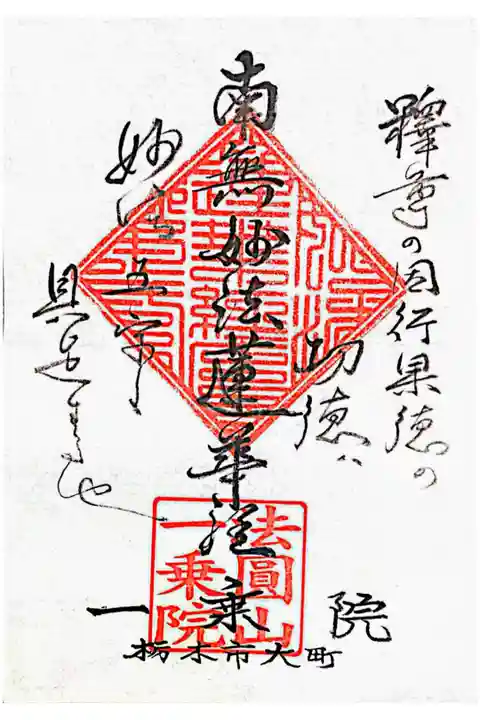 釋尊の因行果徳の
功徳ハ
南無妙法蓮華経
妙法五字
具足する也
一乗院
栃木市大町
法圓山
一乗院